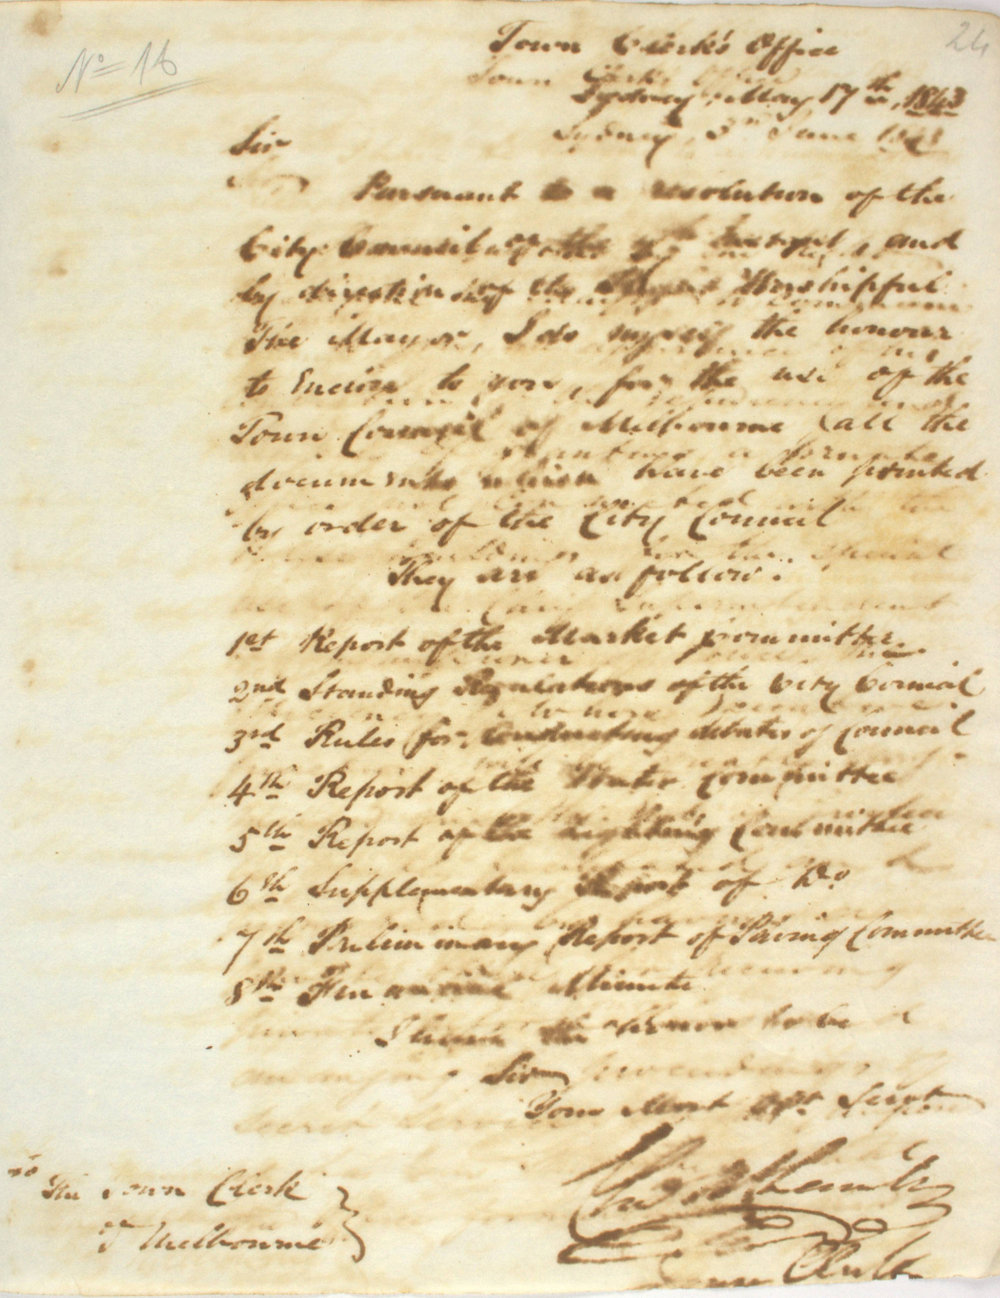 No 16
24
Town Clerk's Office
Sydney, May 17th, 1843
Sir
Pursuant to a resolution of the
City Council of the instant, and
by direction of the Right Worshipful
The Mayor, I do myself the honour
to Enclose to you, for the use of the
Town Council of Melbourne all the
documents which have been printed
by order of the City Council
They are as follow.
1st Report of the Market Committee
2nd Standing Regulations of the City Council
3rd Rules for Conducting debates of Council
4th Report of the Water Committee
5th Report of the Lighting Committee
6th Supplementary Report of Do
7th Preliminary Report of Paving Committee
8th Financial Minute
I have the honor to be
Sir
Your Most Obt Servt
Town Clerk
To
The Town Clerk
of Melbourne